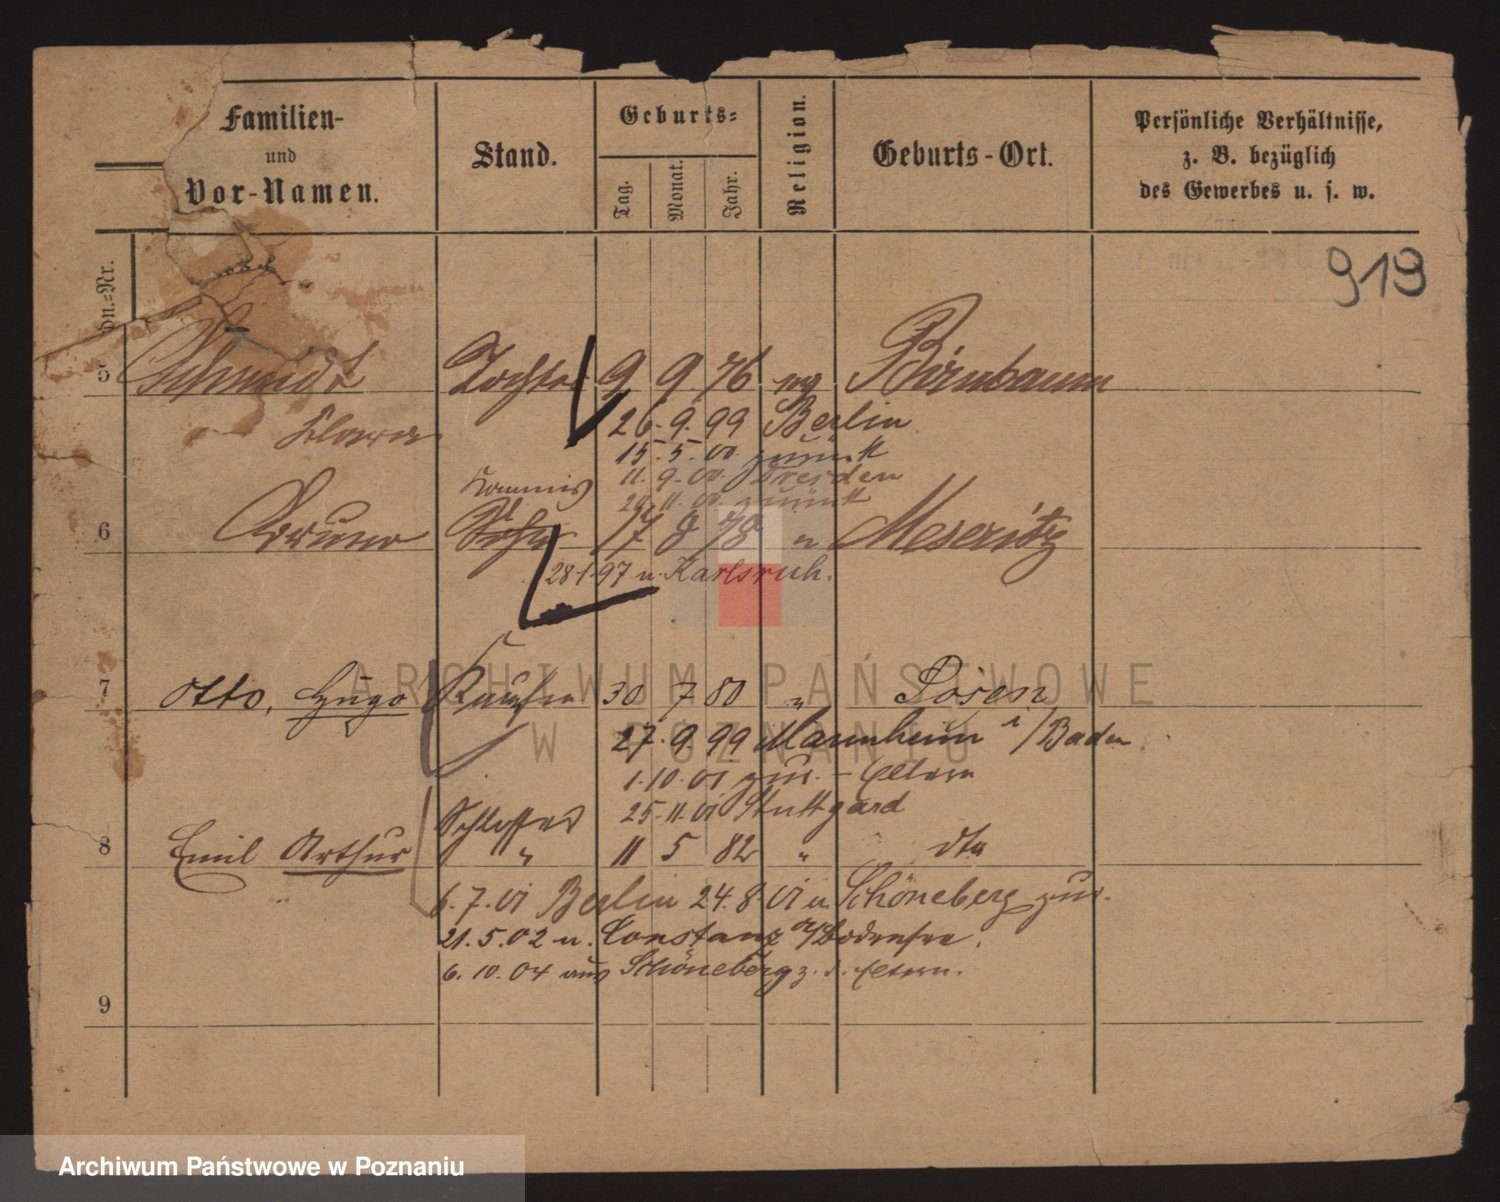 Familien-
und
Vor-Namen.
Stand.
Geburts-
Tag.
Monat.
Jahr.
Religion.
Geburts-Ort.
Persönliche Verhältnisse,
z. B. bezüglich
des Gewerbes u. s. w.
Nr.
919
5 Schmidt Tochter 9 9 76 Birnbaum
Klara 26. 9. 99 Berlin
15. 5. 00. zurück
11. 9. 00. Dresden
Kommis 11. 00. zurück
6 Bruno Sohn 17 8 78 " Meseritz
28 1. 97 n. Karlsruh.
7 Otto, Hugo Kaufm 30 7 80 " Posen
27. 9. 99 Mannheim i/Baden
1. 10. 01 zur. - Eltern
25. 11. 01 Stuttgard
Schlosser
8 Emil Arthur " 11 5 82 " dto
6. 7. 01 Berlin 24. 8. 01 n Schöneberg zur.
21. 5. 02 n. Constanz a/Bodensee.
6. 10. 04 aus Schöneberg z. d. Eltern.
9
ARCHIWUM PAŃSTWOWE
W POZNANIU
Archiwum Państwowe w Poznaniu